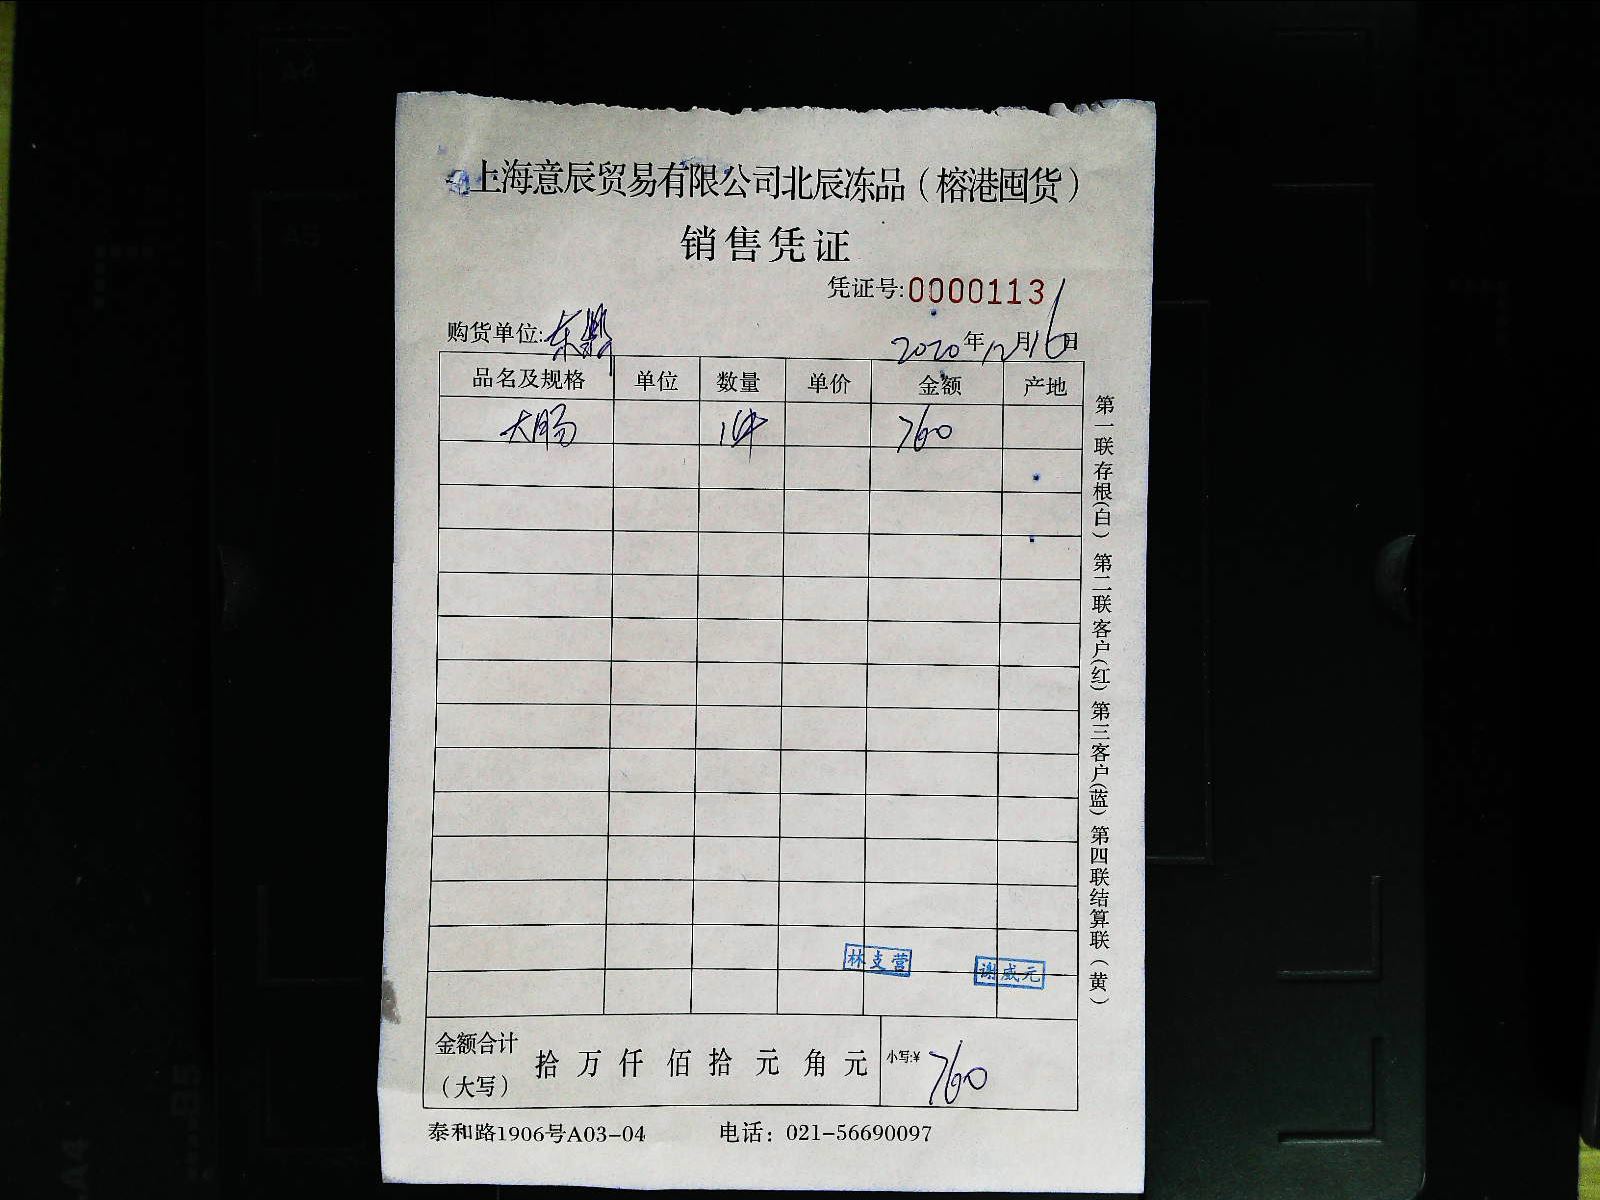 上海意辰贸易有限公司北辰冻品（榕港囤货）
销售凭证
凭证号:0000113
购货单位:东鹏
2020年12月16日
品名及规格 单位 数量 单价 金额 产地
大肠 1件 760
第一联存根(白) 第二联客户(红) 第三客户(蓝) 第四联结算联(黄)
林支营 谢威元
金额合计（大写） 拾 万 仟 佰 拾 元 角 元 小写:¥ 760
泰和路1906号A03-04 电话：021-56690097